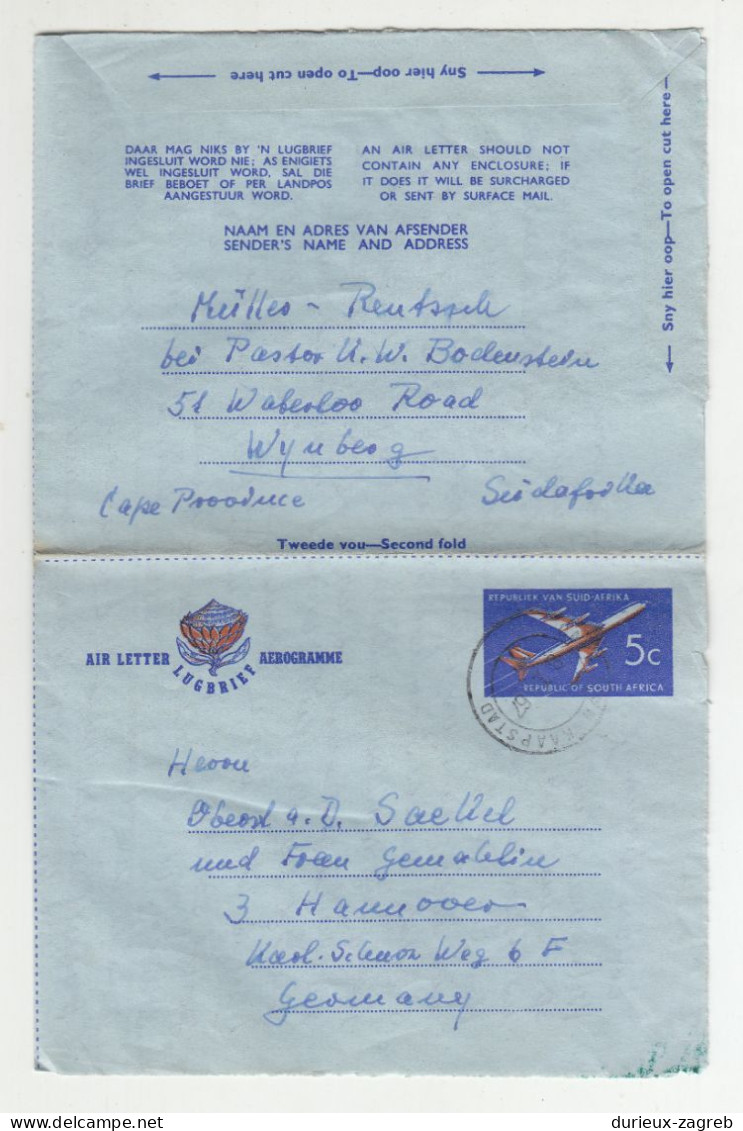 Sny hier oop—To open cut here
Sny hier oop—To open cut here
DAAR MAG NIKS BY 'N LUGBRIEF
INGESLUIT WORD NIE; AS ENIGIETS
WEL INGESLUIT WORD, SAL DIE
BRIEF BEBOET OF PER LANDPOS
AANGESTUUR WORD.
AN AIR LETTER SHOULD NOT
CONTAIN ANY ENCLOSURE; IF
IT DOES IT WILL BE SURCHARGED
OR SENT BY SURFACE MAIL.
NAAM EN ADRES VAN AFSENDER
SENDER'S NAME AND ADDRESS
Müller - Rentzsch
bei Pastor K. W. Bodenstein
51 Waterloo Road
Wynberg
Cape Province Südafrika
Tweede vou—Second fold
AIR LETTER LUGBRIEF AEROGRAMME
REPUBLIEK VAN SUID-AFRIKA
5c
REPUBLIC OF SOUTH AFRICA
KAAPSTAD
Herrn
Oberst a. D. Saekel
und Frau Gemahlin
3 Hannover
Karl-Schurz Weg 6 F
Germany
www.delcampe.net
durieux-zagreb